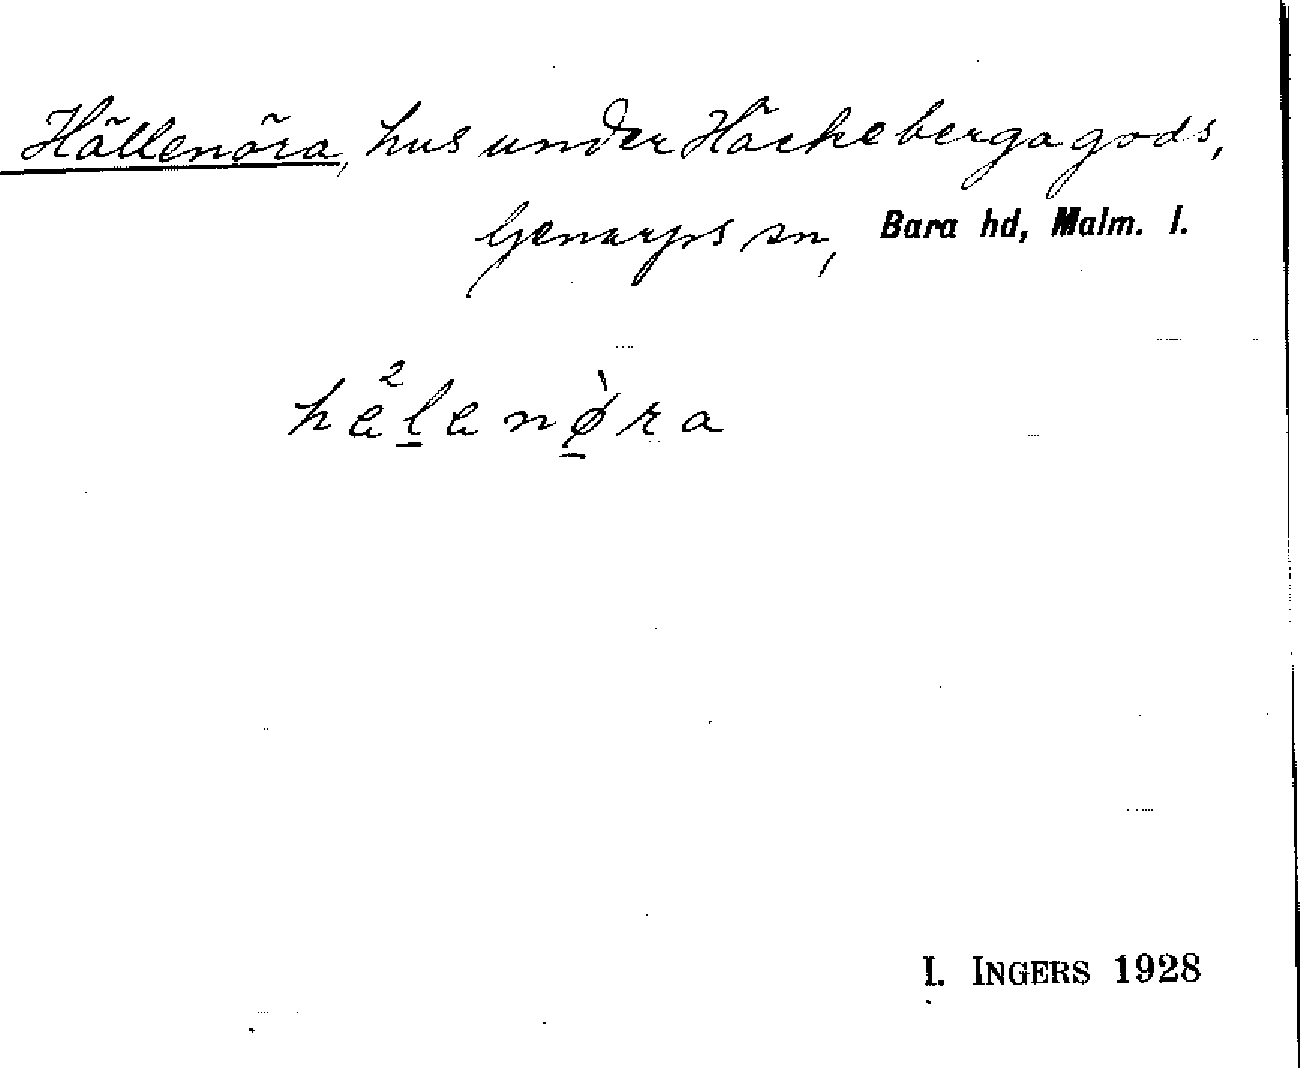 Hällenöra, hus under Häckeberga gods,
Genarps sn, Bara hd, Malm. l.
hälenø̀ra
I. INGERS 1928